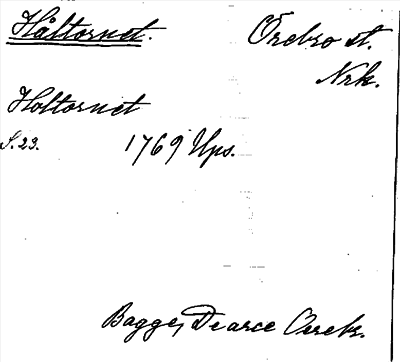 Håltornet.
Örebro st.
Nrk.
Holtornet
S. 23.
1769 Ups.
Bagge,